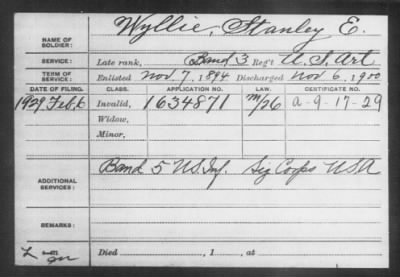 NAME OF SOLDIER: Wyllie, Stanley E.
SERVICE: Late rank, Band 3 Reg't U.S. Art
TERM OF SERVICE: Enlisted Nov. 7, 1894 Discharged Nov. 6, 1900
DATE OF FILING. CLASS. APPLICATION NO. LAW. CERTIFICATE NO.
1929 Feb. 6 Invalid, 1634871 M/26 a-9-17-29
Widow,
Minor,
ADDITIONAL SERVICES: Band 5 U.S. Inf. Sig Corps USA
REMARKS:
Died , 1 , at